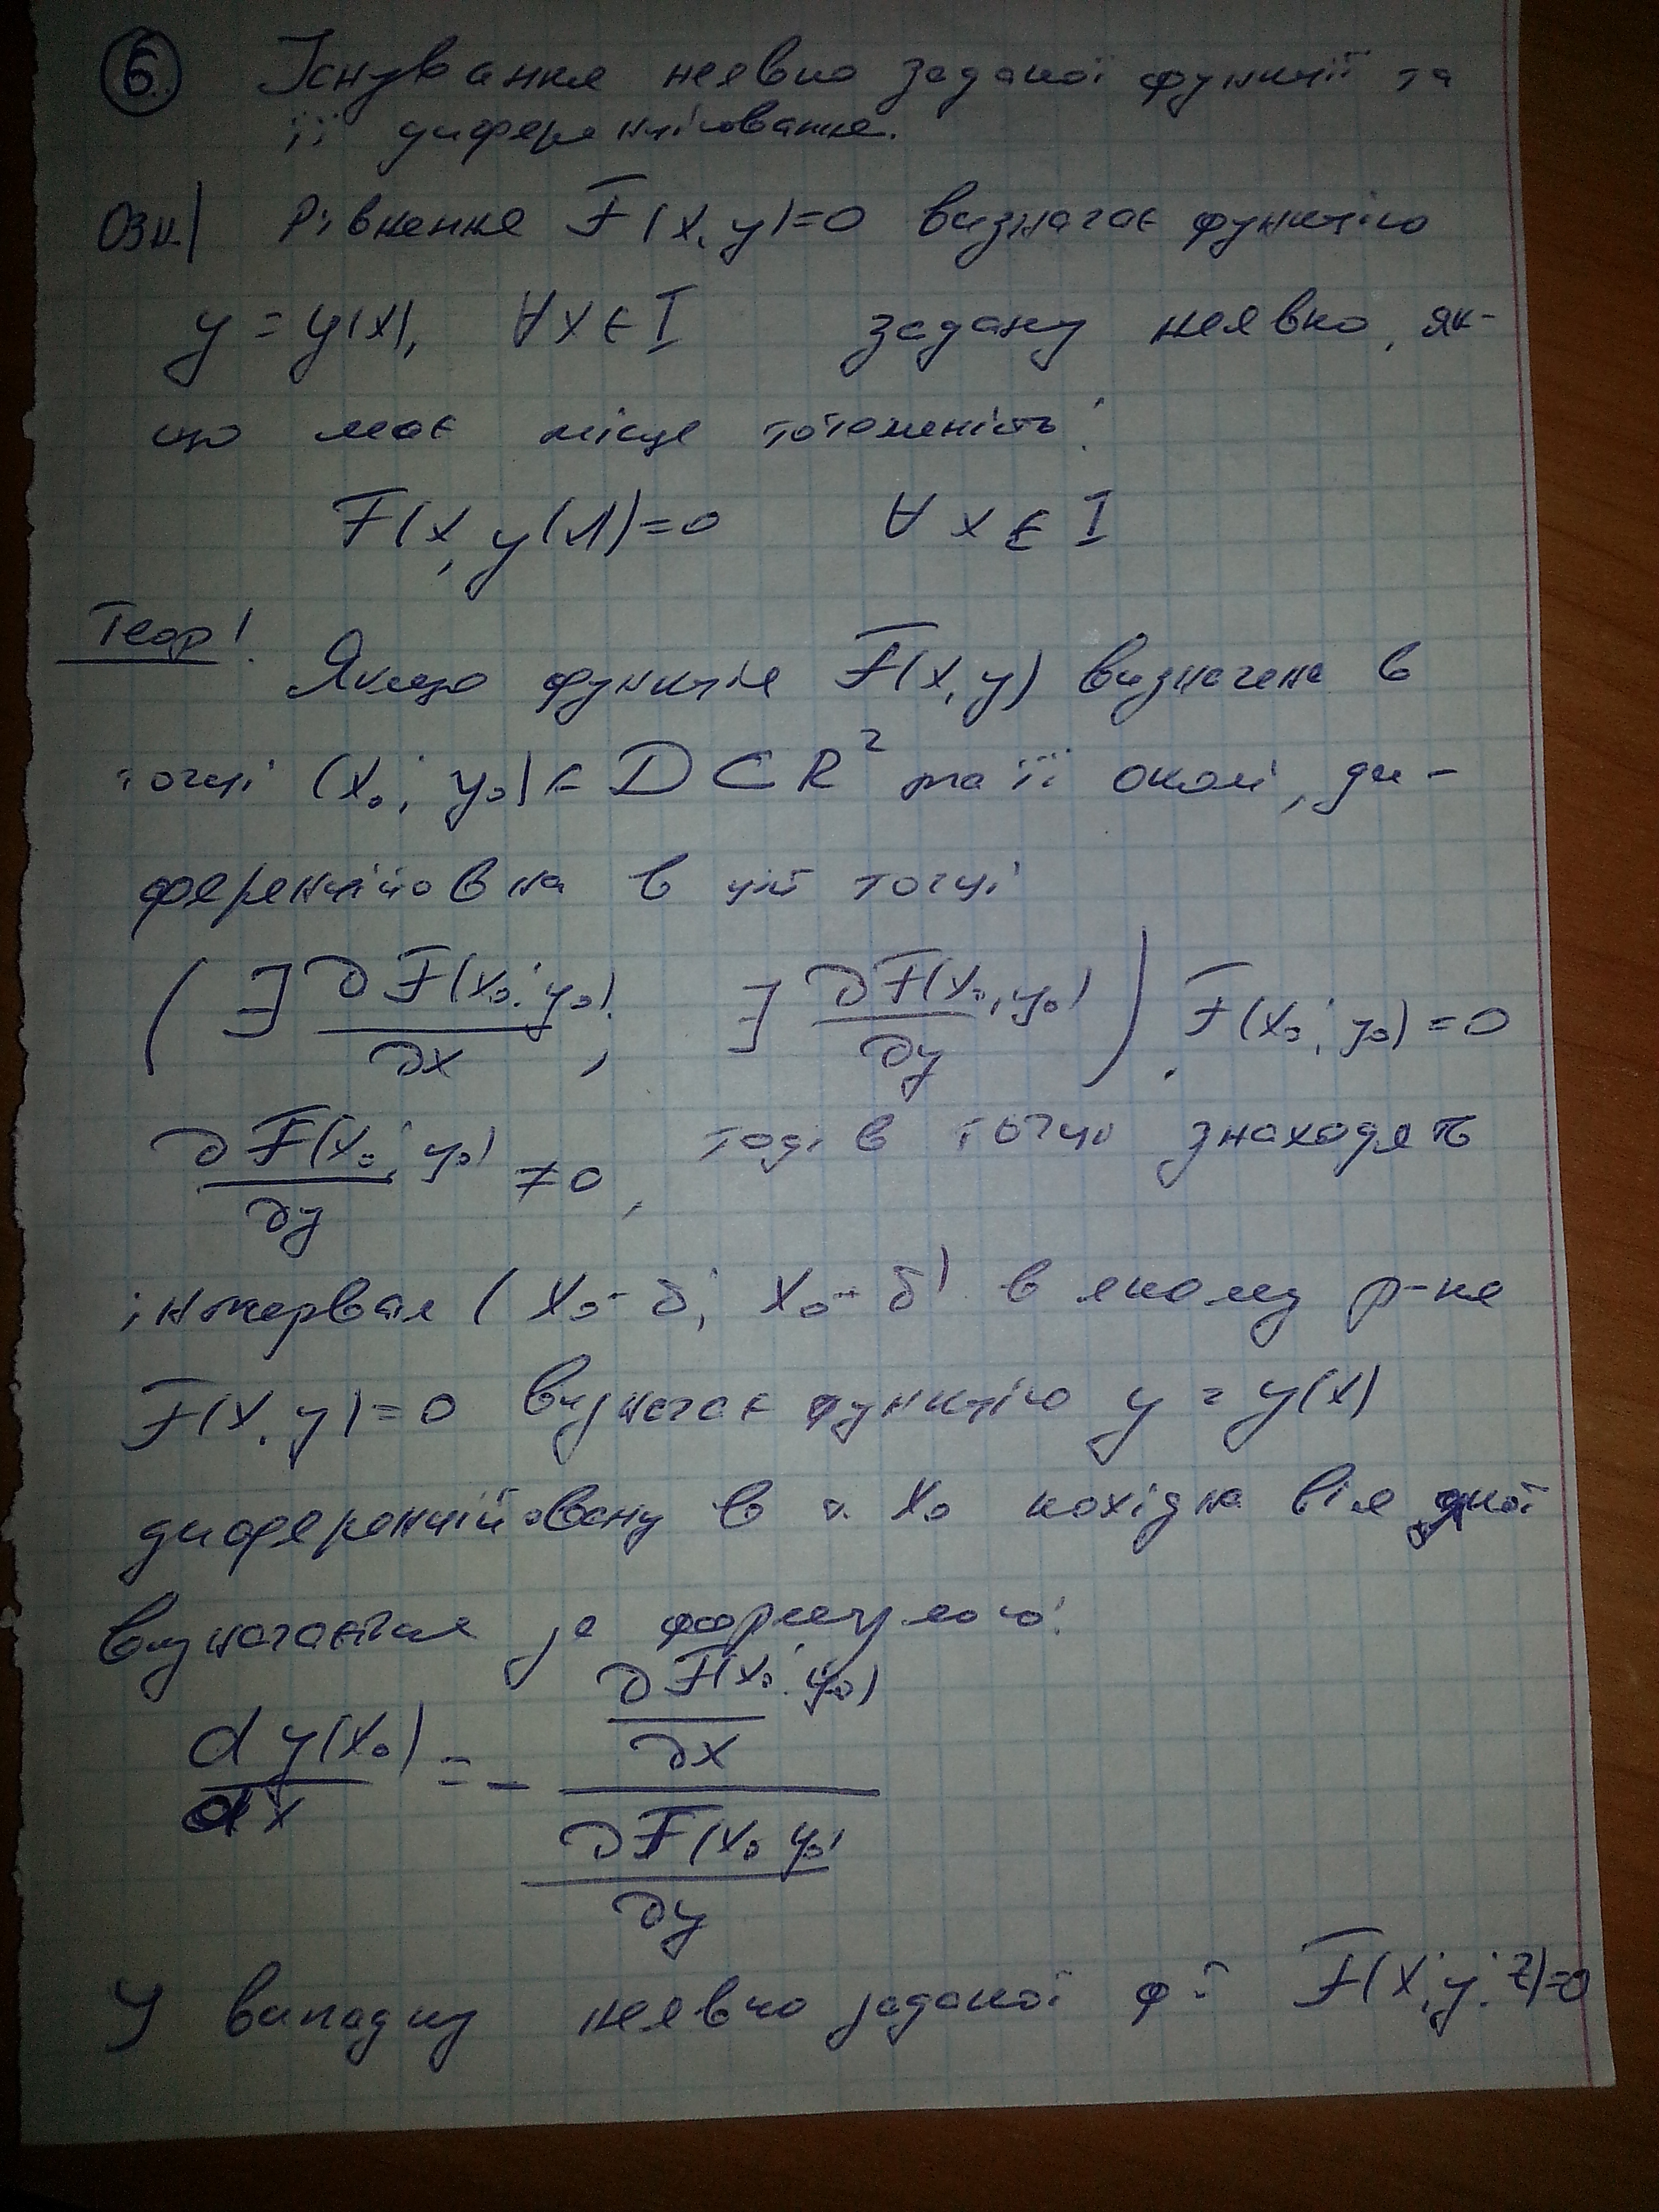 6. Існування неявно заданої функції та
її диференціювання.
Озн.| Рівняння F(x, y)=0 визначає функцію
y = y(x), ∀x∈I задану неявно, як-
що має місце тотожність:
F(x, y(x))=0 ∀x∈I
Теор!
Якщо функція F(x, y) визначена в
точці (x₀; y₀)∈D⊂R² та її околі, ди-
ференційовна в цій точці
(∃ ∂F(x₀; y₀)/∂x, ∃ ∂F(x₀, y₀)/∂y). F(x₀; y₀)=0
∂F(x₀; y₀)/∂y ≠0, тоді в знаходять
інтервал (x₀-δ; x₀+δ) в якому р-ня
F(x, y)=0 визначає функцію y = y(x)
диференційовану в т. x₀ похідна від якої
визначається за формулою:
dy(x₀)/dx = - (∂F(x₀; y₀)/∂x)/(∂F(x₀ y₀)/∂y)
У випадку неявно заданої ф-ї F(x; y; z)=0